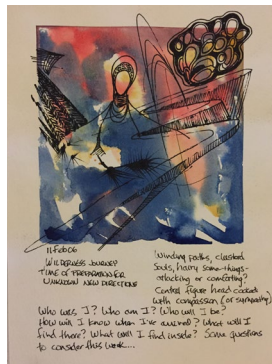 11 Feb 06
WILDERNESS JOURNEY
TIME OF PREPARATION FOR
UNKNOWN NEW DIRECTIONS
Winding paths, clustered
souls, hairy some-things-
attacking or comforting?
Central figure head cocked
with compassion (or sympathy)
Who was I? Who am I? Who will I be?
How will I know when I've arrived? What will I
find there? What will I find inside? Some questions
to consider this week....